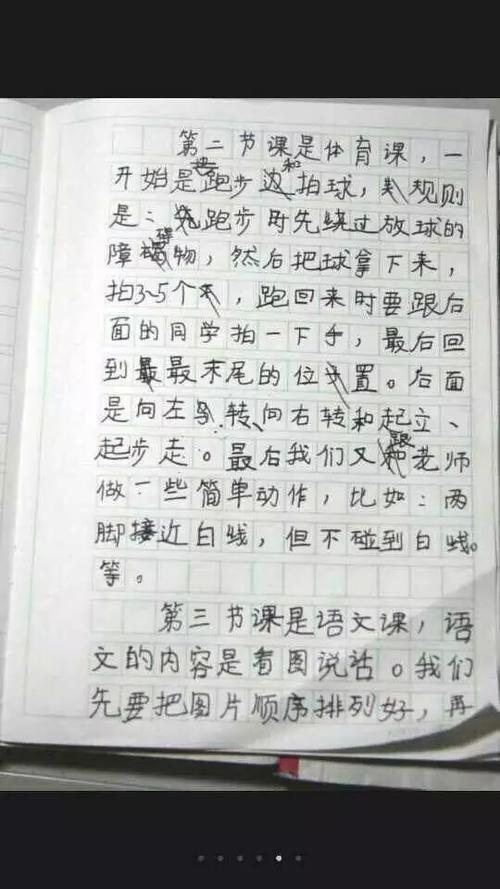 第二节课是体育课，一
开始是跑步和拍球，规则
是：跑步时先绕过放球的
障碍物，然后把球拿下来，
拍3~5个，跑回来时要跟后
面的同学拍一下手，最后回
到最末尾的位置。后面
是向左转、向右转和起立、
起步走。最后我们又跟老师
做一些简单动作，比如：两
脚接近白线，但不碰到白线。
等。
第三节课是语文课，语
文的内容是看图说话。我们
先要把图片顺序排列好，再